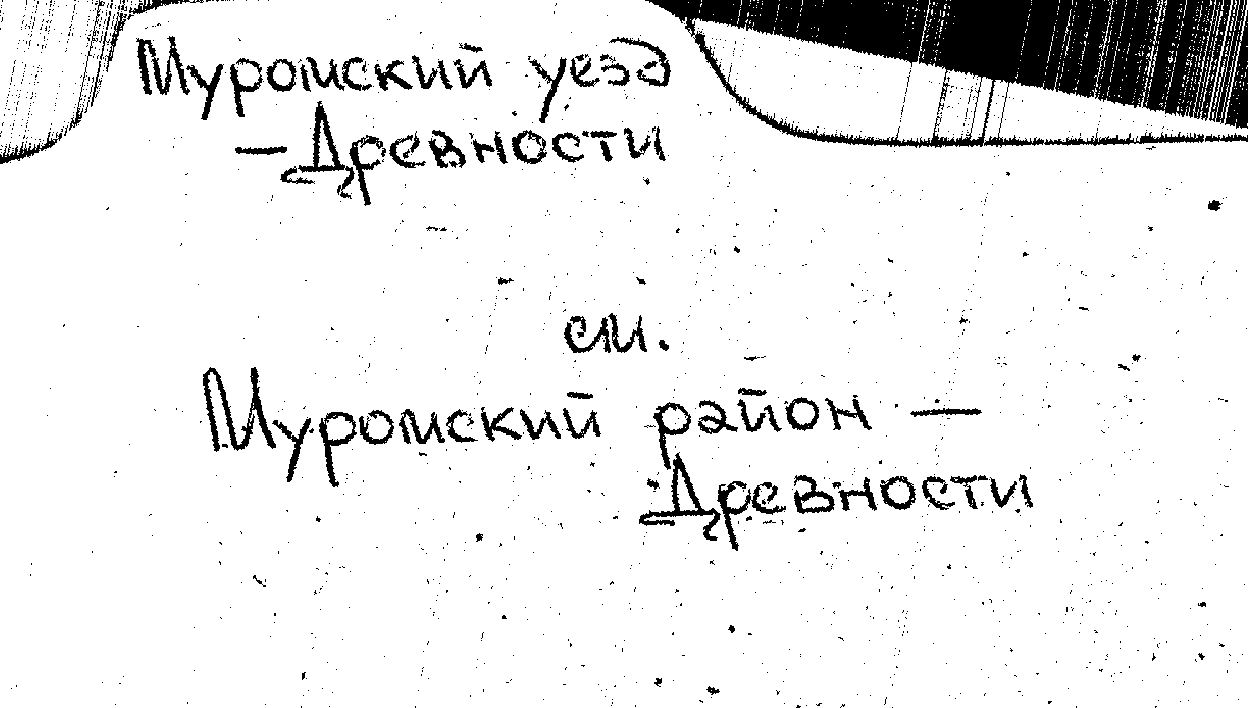 Муромский уезд
— Древности
см.
Муромский район —
Древности